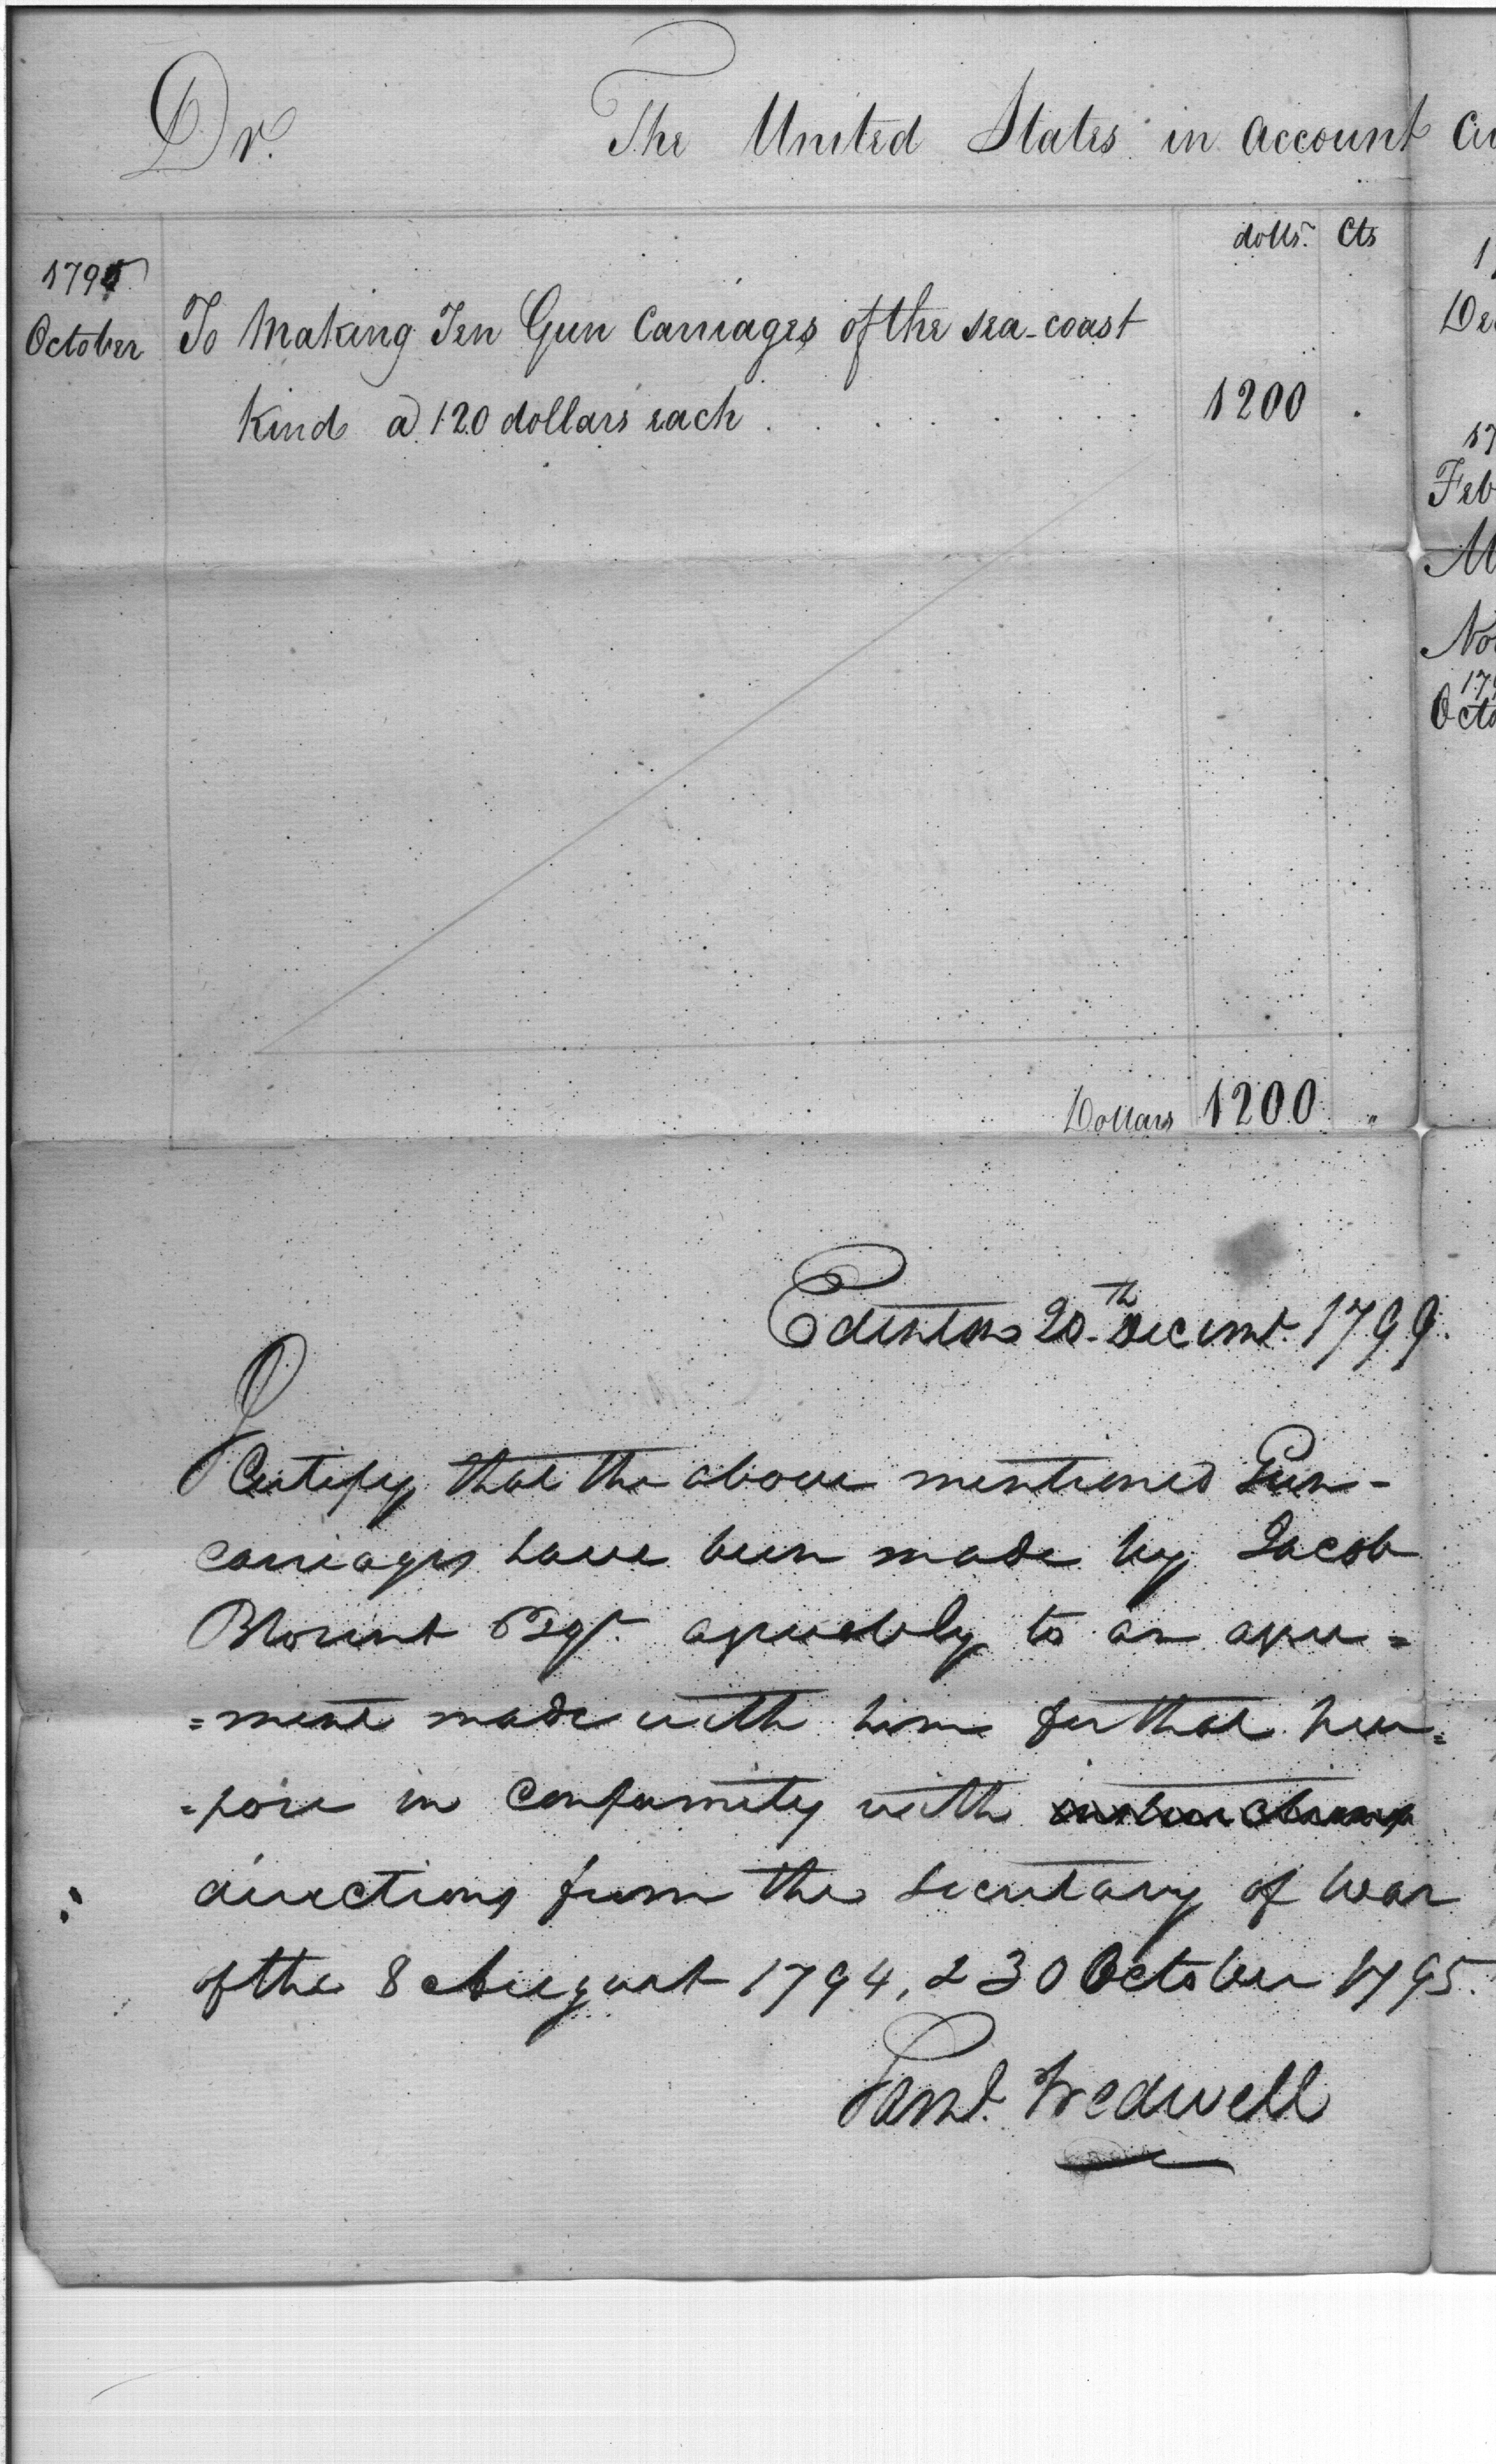 Dr. The United States in account
dolls. Cts
1795
October To Making Ten Gun Carriages of the sea-coast
Kind @ 120 dollars each . . . . . . . 1200 .
Dollars 1200 "
Edenton 20th Decemr. 1799.
I Certify that the above mentioned Gun-
carriages have been made by Jacob
Blount Esqr. agreeably to an agree=
=ment made with him for that pur=
=pose in Conformity with instructions
directions from the Secretary of War
of the 8 August 1794, & 30 October 1795.
Saml. Tredwell
Feb